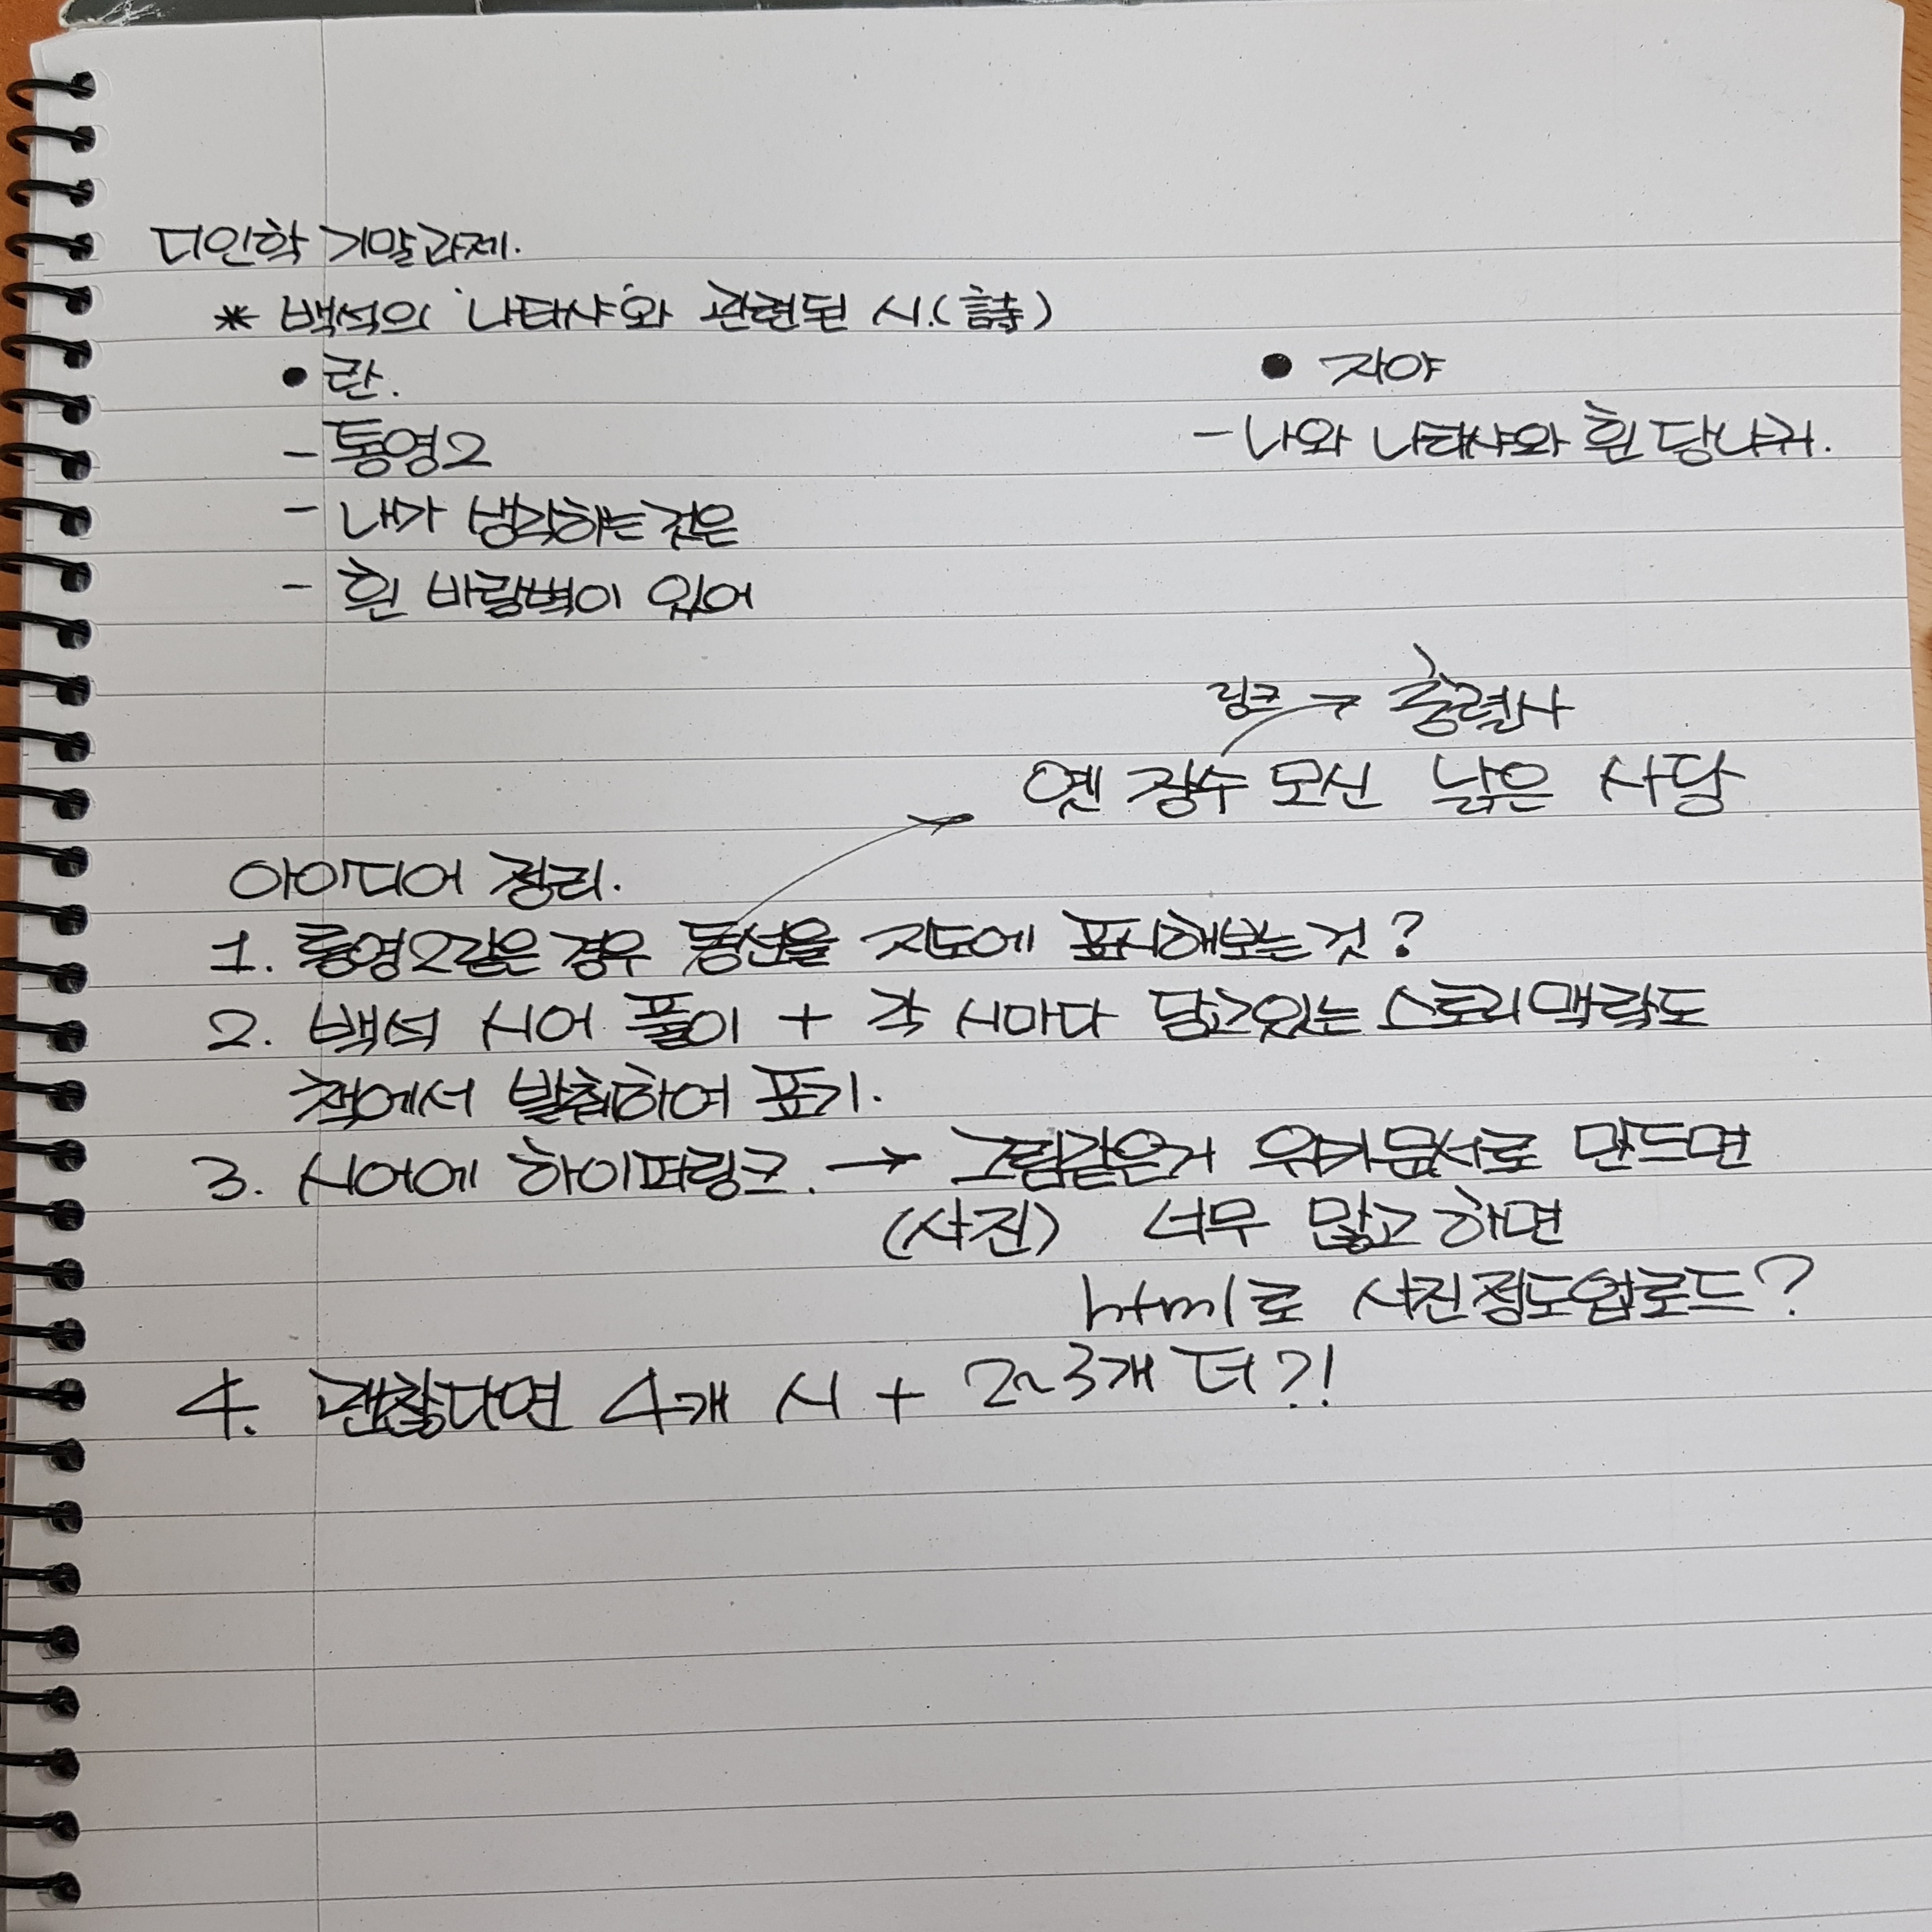 디인학 기말과제.
* 백석의 '나타샤'와 관련된 시.(詩)
● 란.
- 통영2
- 내가 생각하는 것은
- 흰 바람벽이 있어
● 자야
- 나와 나타샤와 흰 당나귀.
링크 → 충렬사
옛 장수 모신 낡은 사당
아이디어 정리.
1. 통영2같은 경우 동선을 지도에 표시해보는 것?
2. 백석 시어 풀이 + 각 시마다 담고있는 스토리 맥락도
책에서 발췌하여 표기.
3. 시어에 하이퍼링크. → 그림같은거 위키문서로 만드면
(사진) 너무 많고 하면
html로 사진정도업로드?
4. 괜찮다면 4개 시 + 2~3개 더?!